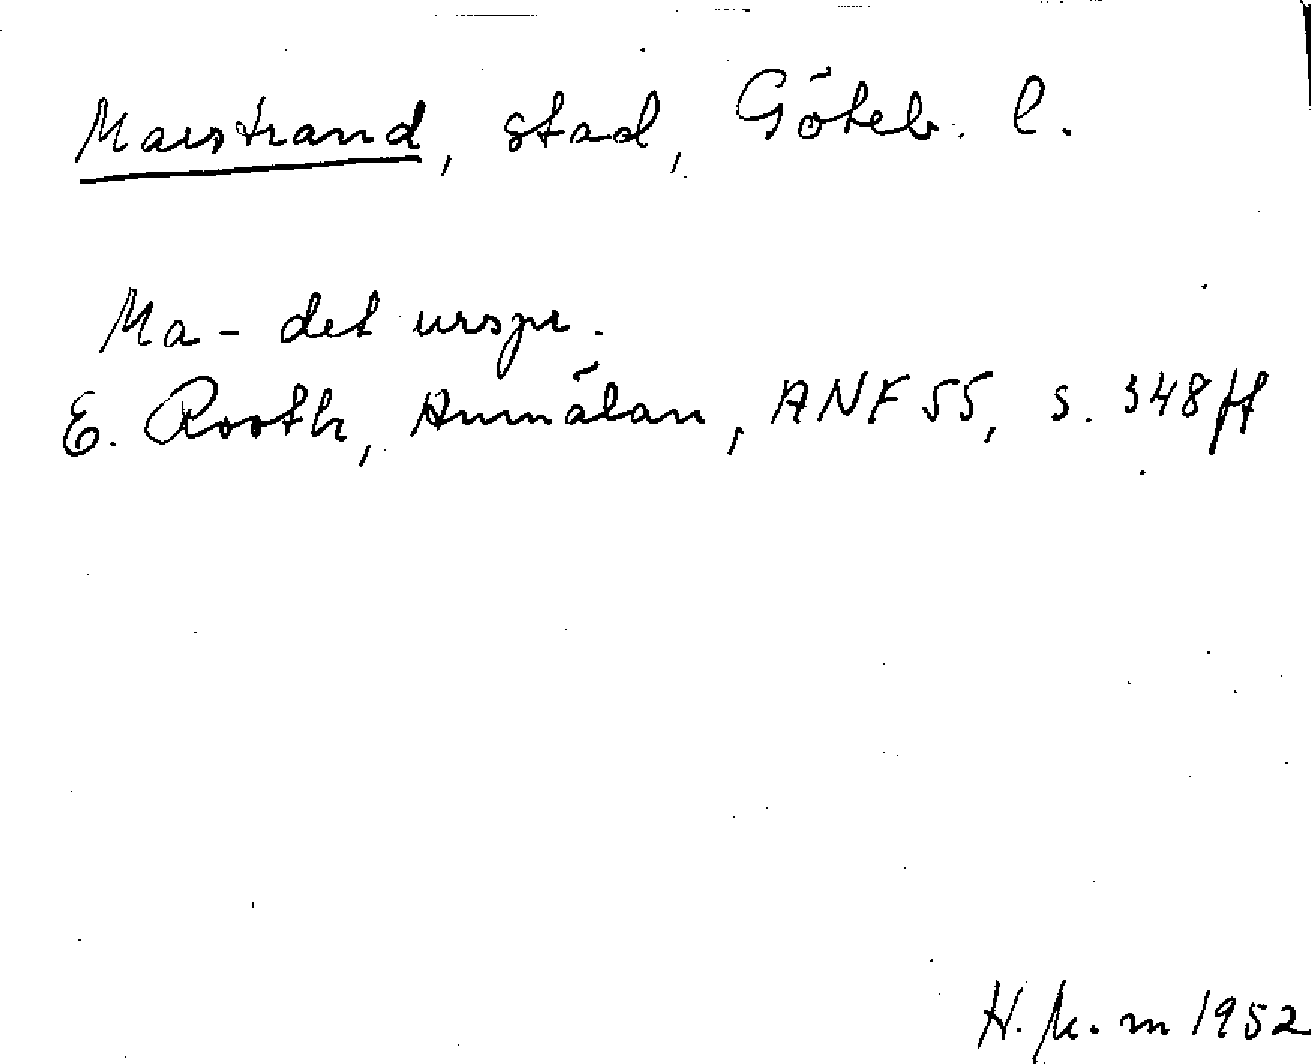 Marstrand, stad, Göteb. l.
Ma- det urspr.
E. Rooth, Anmälan, ANF 55, s. 348 ff
H. k. m 1952